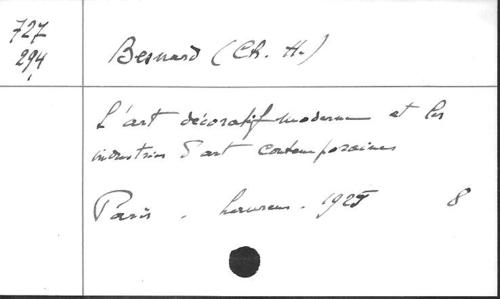 727
294
Besnard (Ch. H.)
L'art décoratif moderne et les
industries d'art contemporaines
Paris - - 1925 8